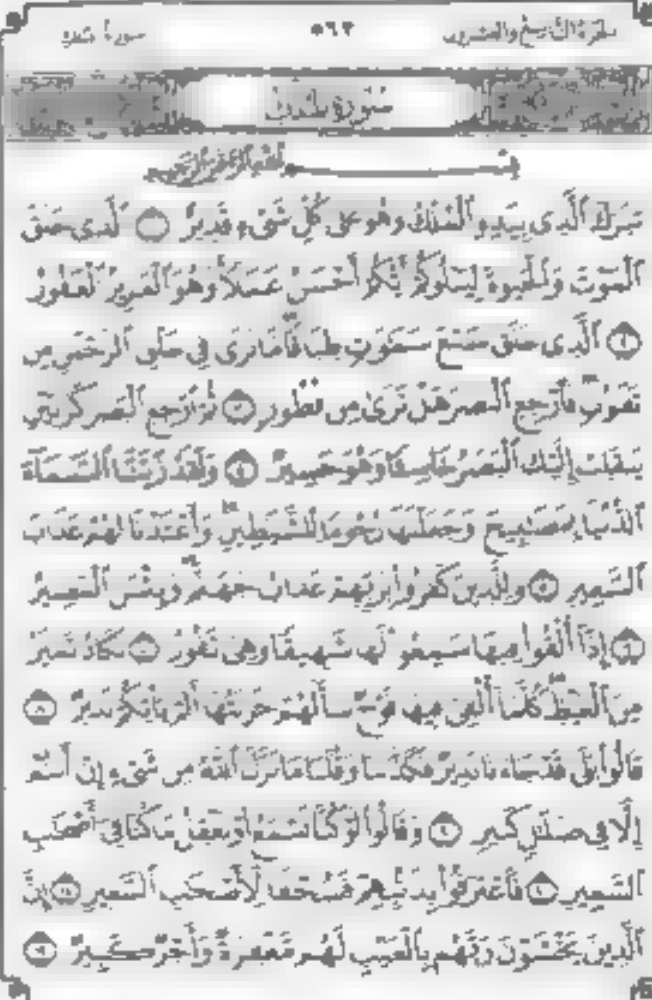 سورة الملك ٥٦٢ الجزء التاسع والعشرون
سُورَةُ الملك
بِسْمِ ٱللَّهِ ٱلرَّحْمَٰنِ ٱلرَّحِيمِ
تَبَٰرَكَ ٱلَّذِى بِيَدِهِ ٱلْمُلْكُ وَهُوَ عَلَىٰ كُلِّ شَىْءٍ قَدِيرٌ ١ ٱلَّذِى خَلَقَ
ٱلْمَوْتَ وَٱلْحَيَوٰةَ لِيَبْلُوَكُمْ أَيُّكُمْ أَحْسَنُ عَمَلًا وَهُوَ ٱلْعَزِيزُ ٱلْغَفُورُ
٢ ٱلَّذِى خَلَقَ سَبْعَ سَمَٰوَٰتٍ طِبَاقًا مَّا تَرَىٰ فِى خَلْقِ ٱلرَّحْمَٰنِ مِن
تَفَٰوُتٍ فَٱرْجِعِ ٱلْبَصَرَ هَلْ تَرَىٰ مِن فُطُورٍ ٣ ثُمَّ ٱرْجِعِ ٱلْبَصَرَ كَرَّتَيْنِ
يَنقَلِبْ إِلَيْكَ ٱلْبَصَرُ خَاسِئًا وَهُوَ حَسِيرٌ ٤ وَلَقَدْ زَيَّنَّا ٱلسَّمَآءَ
ٱلدُّنْيَا بِمَصَٰبِيحَ وَجَعَلْنَٰهَا رُجُومًا لِّلشَّيَٰطِينِ وَأَعْتَدْنَا لَهُمْ عَذَابَ
ٱلسَّعِيرِ ٥ وَلِلَّذِينَ كَفَرُوا۟ بِرَبِّهِمْ عَذَابُ جَهَنَّمَ وَبِئْسَ ٱلْمَصِيرُ
٦ إِذَآ أُلْقُوا۟ فِيهَا سَمِعُوا۟ لَهَا شَهِيقًا وَهِىَ تَفُورُ ٧ تَكَادُ تَمَيَّزُ
مِنَ ٱلْغَيْظِ كُلَّمَآ أُلْقِىَ فِيهَا فَوْجٌ سَأَلَهُمْ خَزَنَتُهَآ أَلَمْ يَأْتِكُمْ نَذِيرٌ ٨
قَالُوا۟ بَلَىٰ قَدْ جَآءَنَا نَذِيرٌ فَكَذَّبْنَا وَقُلْنَا مَا نَزَّلَ ٱللَّهُ مِن شَىْءٍ إِنْ أَنتُمْ
إِلَّا فِى ضَلَٰلٍ كَبِيرٍ ٩ وَقَالُوا۟ لَوْ كُنَّا نَسْمَعُ أَوْ نَعْقِلُ مَا كُنَّا فِىٓ أَصْحَٰبِ
ٱلسَّعِيرِ ١٠ فَٱعْتَرَفُوا۟ بِذَنۢبِهِمْ فَسُحْقًا لِّأَصْحَٰبِ ٱلسَّعِيرِ ١١ إِنَّ
ٱلَّذِينَ يَخْشَوْنَ رَبَّهُم بِٱلْغَيْبِ لَهُم مَّغْفِرَةٌ وَأَجْرٌ كَبِيرٌ ١٢